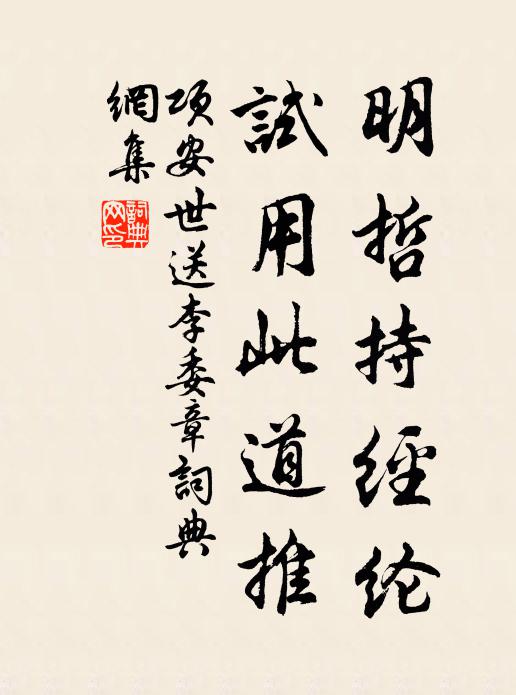 明哲持經纶
試用此道推
項安世送李委章詞典
網集
詞典
网印